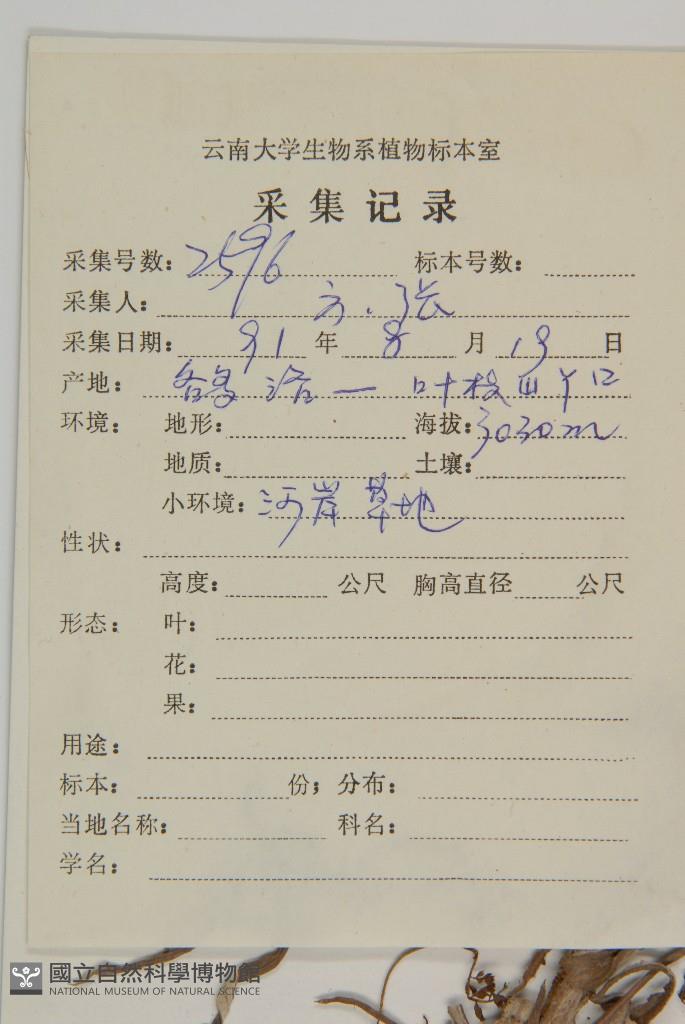 云南大学生物系植物标本室
采集记录
采集号数: 2596 标本号数:
采集人: 方、张
采集日期: 91 年 8 月 19 日
产地: 洛 — 叶枝 丫口
环境: 地形: 海拔: 3030m
地质: 土壤:
小环境: 河岸草地
性状:
高度: 公尺 胸高直径 公尺
形态: 叶:
花:
果:
用途:
标本: 份; 分布:
当地名称: 科名:
学名:
國立自然科學博物館
NATIONAL MUSEUM OF NATURAL SCIENCE